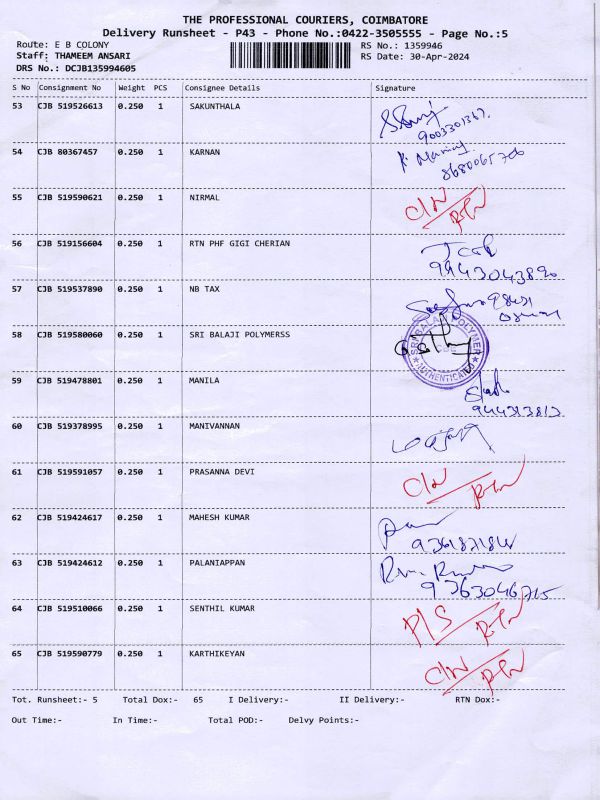 THE PROFESSIONAL COURIERS, COIMBATORE
Delivery Runsheet - P43 - Phone No.:0422-3505555 - Page No.:5
Route: E B COLONY RS No.: 1359946
Staff: THAMEEM ANSARI RS Date: 30-Apr-2024
DRS No.: DCJB135994605
S No Consignment No Weight PCS Consignee Details Signature
53 CJB 519526613 0.250 1 SAKUNTHALA
9003301367.
54 CJB 80367457 0.250 1 KARNAN
55 CJB 519590621 0.250 1 NIRMAL C/N
RTN
56 CJB 519156604 0.250 1 RTN PHF GIGI CHERIAN
9943043890
57 CJB 519537890 0.250 1 NB TAX
58 CJB 519580060 0.250 1 SRI BALAJI POLYMERSS
SRI BALAJI POLYMER
AUTHENTICATED
59 CJB 519478801 0.250 1 MANILA
60 CJB 519378995 0.250 1 MANIVANNAN
61 CJB 519591057 0.250 1 PRASANNA DEVI C/N
RTN
62 CJB 519424617 0.250 1 MAHESH KUMAR
63 CJB 519424612 0.250 1 PALANIAPPAN
9363046715
64 CJB 519510066 0.250 1 SENTHIL KUMAR P/S
RTN
65 CJB 519590779 0.250 1 KARTHIKEYAN C/N
RTN
Tot. Runsheet:- 5 Total Dox:- 65 I Delivery:- II Delivery:- RTN Dox:-
Out Time:- In Time:- Total POD:- Delvy Points:-